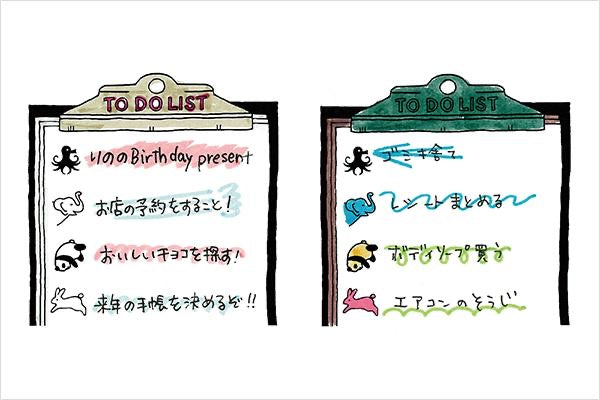 TO DO LIST
りののBirthday present
お店の予約をすること!
おいしいチョコを探す!
来年の手帳を決めるぞ!!
TO DO LIST
ゴミ捨て
レシートまとめる
ボディソープ買う
エアコンのそうじ